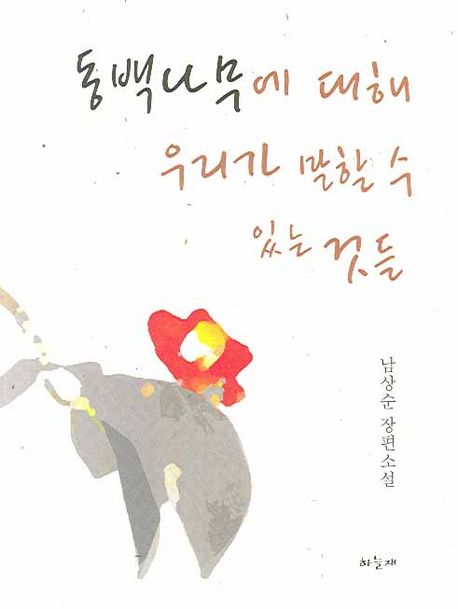 동백나무에 대해
우리가 말할 수
있는 것들
남상순 장편소설
하늘재